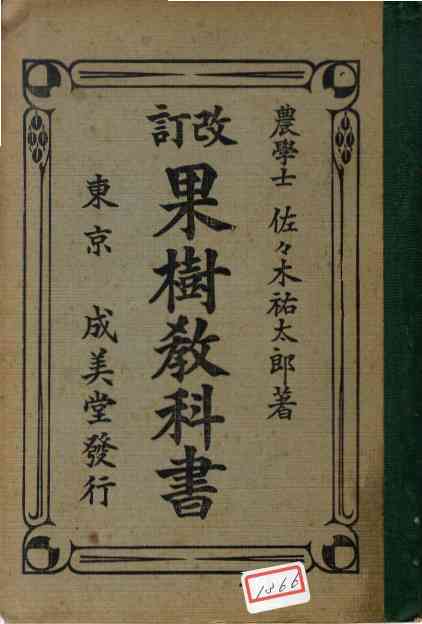 農學士 佐々木祐太郎著
改訂
果樹教科書
東京 成美堂發行
1866